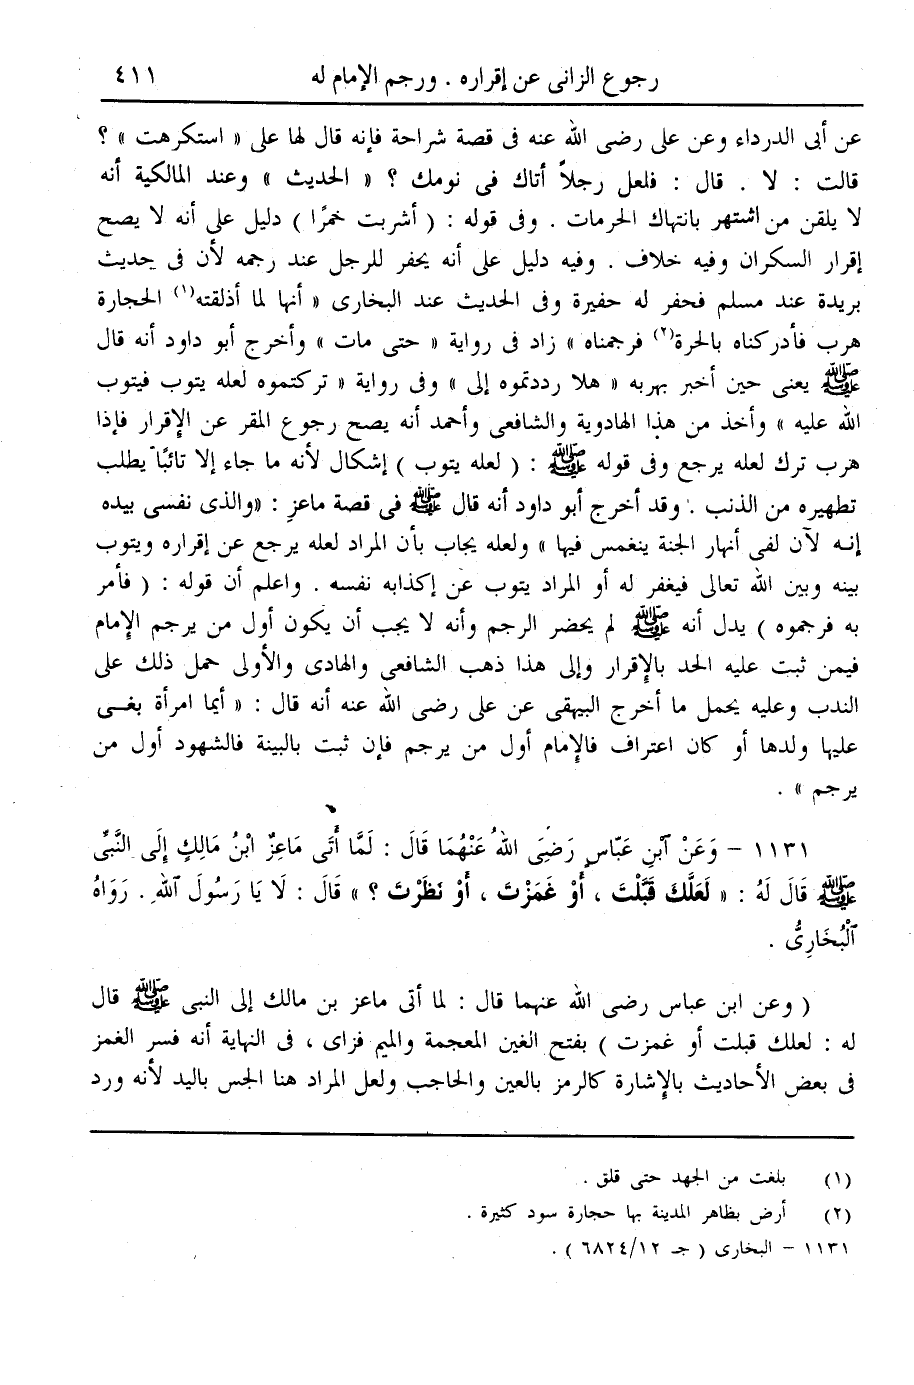 رجوع الزانى عن إقراره . ورجم الإمام له ٤١١
عن أبى الدرداء وعن على رضى الله عنه فى قصة شراحة فإنه قال لها على « استكرهت » ؟
قالت : لا . قال : فلعل رجلاً أتاك فى نومك ؟ « الحديث » وعند المالكية أنه
لا يلقن من اشتهر بانتهاك الحرمات . وفى قوله : ( أشربت خمرًا ) دليل على أنه لا يصح
إقرار السكران وفيه خلاف . وفيه دليل على أنه يحفر للرجل عند رجمه لأن فى حديث
بريدة عند مسلم فحفر له حفيرة وفى الحديث عند البخارى « أنها لما أذلقته(١) الحجارة
هرب فأدركناه بالحرة(٢) فرجمناه » زاد فى رواية « حتى مات » وأخرج أبو داود أنه قال
ﷺ يعنى حين أخبر بهربه « هلا رددتموه إلى » وفى رواية « تركتموه لعله يتوب فيتوب
الله عليه » وأخذ من هذا الهادوية والشافعى وأحمد أنه يصح رجوع المقر عن الإقرار فإذا
هرب ترك لعله يرجع وفى قوله ﷺ : ( لعله يتوب ) إشكال لأنه ما جاء إلا تائبًا يطلب
تطهيره من الذنب . وقد أخرج أبو داود أنه قال ﷺ فى قصة ماعز : «والذى نفسى بيده
إنه لآن لفى أنهار الجنة ينغمس فيها » ولعله يجاب بأن المراد لعله يرجع عن إقراره ويتوب
بينه وبين الله تعالى فيغفر له أو المراد يتوب عن إكذابه نفسه . واعلم أن قوله : ( فأمر
به فرجموه ) يدل أنه ﷺ لم يحضر الرجم وأنه لا يجب أن يكون أول من يرجم الإمام
فيمن ثبت عليه الحد بالإقرار وإلى هذا ذهب الشافعى والهادى والأولى حمل ذلك على
الندب وعليه يحمل ما أخرج البيهقى عن على رضى الله عنه أنه قال : « أيما امرأة بغـى
عليها ولدها أو كان اعتراف فالإمام أول من يرجم فإن ثبت بالبينة فالشهود أول من
يرجم » .
١١٣١ – وَعَنْ ٱبنِ عَبَّاسٍ رَضِىَ اللهُ عَنْهُمَا قَالَ : لَمَّا أَتَى مَاعِزٌ ابْنُ مَالِكٍ إِلَى النَّبِىِّ
ﷺ قَالَ لَهُ : « لَعَلَّكَ قَبَّلْتَ ، أَوْ غَمَزْتَ ، أَوْ نَظَرْتَ ؟ » قَالَ : لَا يَا رَسُولَ ٱللهِ . رَوَاهُ
ٱلْبُخَارِىُّ .
( وعن ابن عباس رضى الله عنهما قال : لما أتى ماعز بن مالك إلى النبى ﷺ قال
له : لعلك قبلت أو غمزت ) بفتح الغين المعجمة والميم فزاى ، فى النهاية أنه فسر الغمز
فى بعض الأحاديث بالإشارة كالرمز بالعين والحاجب ولعل المراد هنا الجس باليد لأنه ورد
(١) بلغت من الجهد حتى قلق .
(٢) أرض بظاهر المدينة بها حجارة سود كثيرة .
١١٣١ – البخارى ( جـ ٦٨٢٤/١٢ ) .